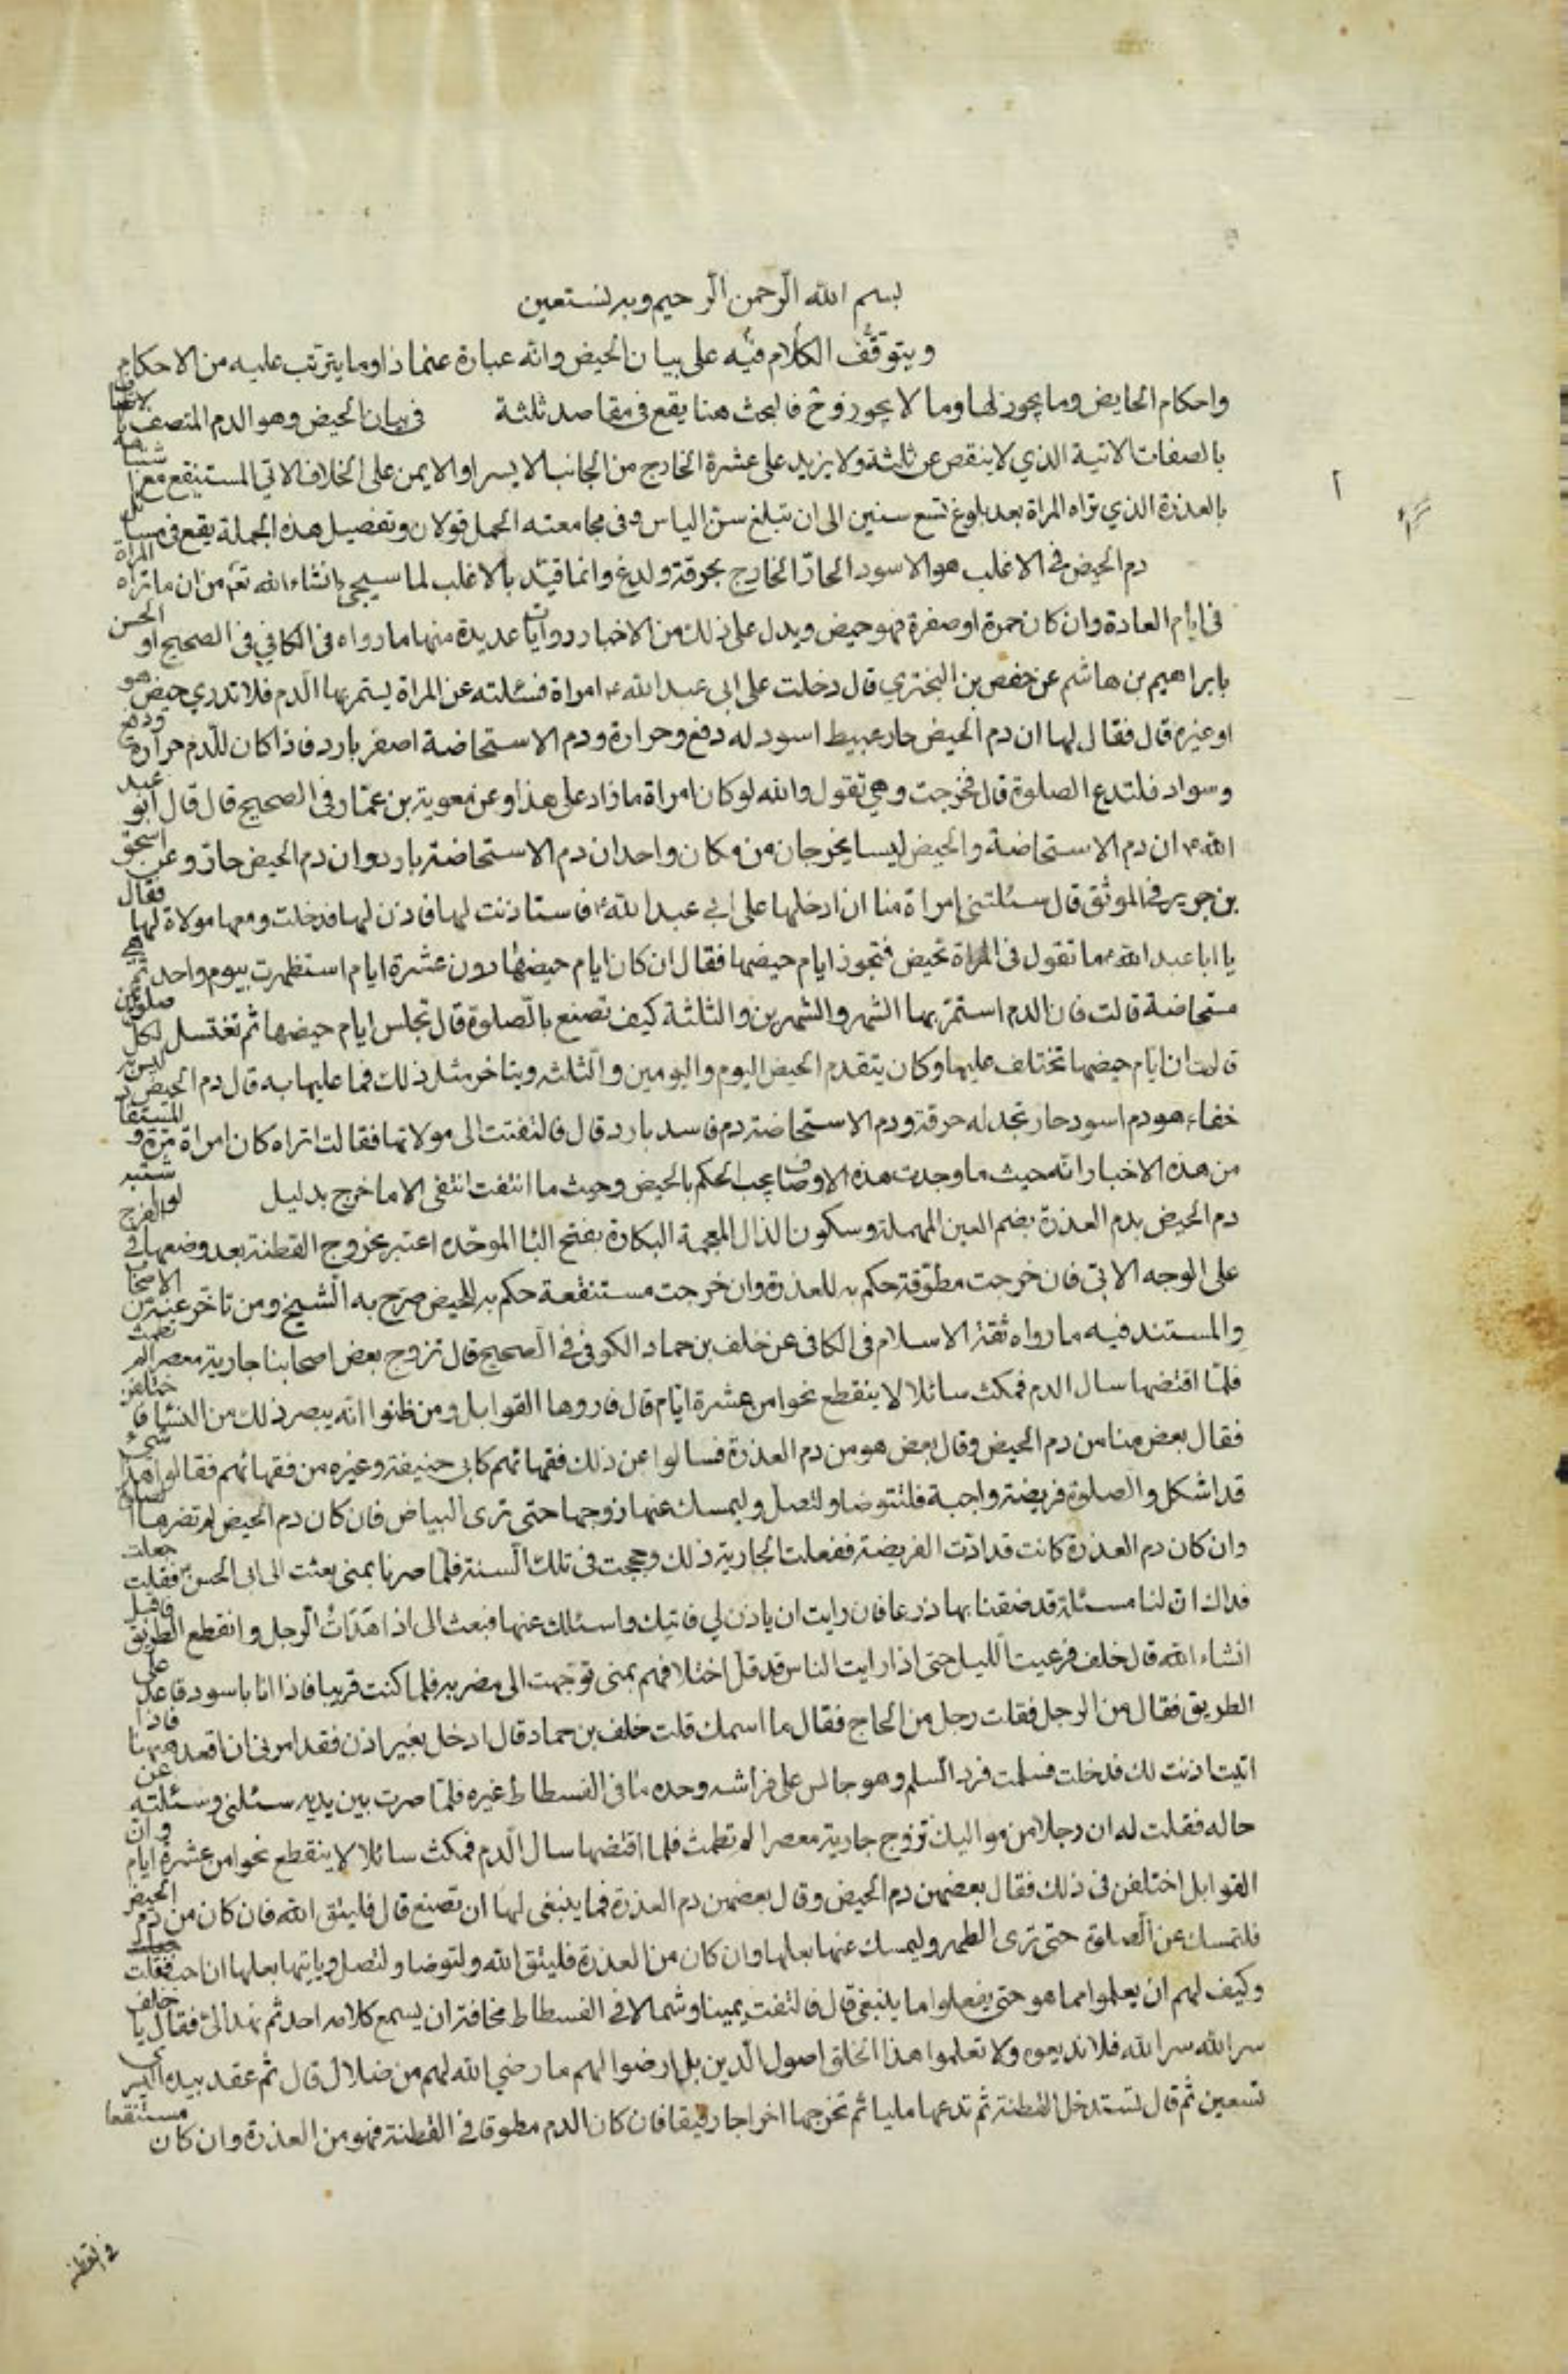 بسم الله الرحمن الرحيم وبه نستعين
ويتوقف الكلام فيه على بيان الحيض وانه عبارة عنماذا وما يترتب عليه من الاحكام
واحكام الحايض وما يجوز لها وما لا يجوز فالبحث هنا يقع في مقاصد ثلثة في بيان الحيض وهو الدم المتصف
بالصفات الاتية الذي لا ينقص عن ثلثة ولا يزيد على عشرة الخارج من الجانب الايسر او الايمن على الخلاف الاتي المستنقع مع اشتباهه
بالعذرة الذي تراه المراة بعد بلوغ تسع سنين الى ان تبلغ سن الياس وفي مجامعته الحمل قولان وتفصيل هذه الجملة يقع في مسائل
دم الحيض في الاغلب هو الاسود الحار الخارج بحرقة ولدغ وانما قيد بالاغلب لما سيجئ انشاء الله تعم من ان ما تراه المراة
في ايام العادة وان كان حمرة او صفرة فهو حيض ويدل على ذلك من الاخبار روايات عديدة منها ما رواه في الكافي في الصحيح او الحسن
بابراهيم بن هاشم عن حفص بن البختري قال دخلت على ابي عبد الله ع امراة فسئلته عن المراة يستمر بها الدم فلا تدري حيض هو
او غيره قال فقال لها ان دم الحيض حار عبيط اسود له دفع وحرارة ودم الاستحاضة اصفر بارد فاذا كان للدم حرارة ودفع
وسواد فلتدع الصلوة قال فخرجت وهي تقول والله لو كان امراة ما زاد على هذا وعن معوية بن عمار في الصحيح قال قال ابو عبد
الله ع ان دم الاستحاضة والحيض ليسا يخرجان من مكان واحد ان دم الاستحاضة بارد وان دم الحيض حار وعن اسحق
بن جرير في الموثق قال سئلتني امراة منا ان ادخلها على ابي عبد الله ع فاستاذنت لها فاذن لها فدخلت ومعها مولاة لها فقال
يا ابا عبد الله ع ما تقول في المراة تحيض فتجوز ايام حيضها فقال ان كان ايام حيضها دون عشرة ايام استظهرت بيوم واحد ثم هي
مستحاضة قالت فان الدم استمر بها الشهر والشهرين والثلثة كيف تصنع بالصلوة قال تجلس ايام حيضها ثم تغتسل لكل صلوتين
قالت ان ايام حيضها تختلف عليها وكان يتقدم الحيض اليوم واليومين والثلثه ويتاخر مثل ذلك فما عليها به قال دم الحيض ليس به
خفاء هو دم اسود حار تجد له حرقة ودم الاستحاضة دم فاسد بارد قال فالتفتت الى مولاتها فقالت اتراه كان امراة مرة و المستفاد
من هذه الاخبار انه حيث ما وجدت هذه الاوصاف يجب الحكم بالحيض وحيث ما انتفت انتفى الا ما خرج بدليل لو اشتبه
دم الحيض بدم العذرة بضم العين المهملة وسكون الذال المعجمة البكارة بفتح البا الموحده اعتبر بخروج القطنة بعد وضعها في الفرج
على الوجه الاتي فان خرجت مطوقة حكم به للعذرة وان خرجت مستنقعة حكم به للحيض صرح به الشيخ ومن تاخر عنه من الاصحاب
والمستند فيه ما رواه ثقة الاسلام في الكافي عن خلف بن حماد الكوفي في الصحيح قال تزوج بعض اصحابنا جارية معصرا لم تطمث
فلما اقتضها سال الدم فمكث سائلا لا ينقطع نحوا من عشرة ايام قال فاروها القوابل ومن ظنوا انه يبصر ذلك من النساء فاختلفن
فقال بعض منا من دم الحيض وقال بعض هو من دم العذرة فسالوا عن ذلك فقهائهم كابي حنيفة وغيره من فقهائهم فقالوا هذا شيء
قد اشكل والصلوة فريضة واجبة فلتتوضا ولتصل وليمسك عنها زوجها حتى ترى البياض فان كان دم الحيض لم تضرها الصلوة
وان كان دم العذرة كانت قد ادت الفريضة ففعلت الجارية ذلك وحججت في تلك السنة فلما صرنا بمنى بعثت الى ابي الحسن ع فقلت جعلت
فداك ان لنا مسئلة قد ضقنا بها ذرعا فان رايت ان ياذن لي فاتيك واسئلك عنها فبعث الى اذا هدات الرجل وانقطع الطريق فاقبل
انشاء الله قال خلف فرعيت الليل حتى اذا رايت الناس قد قل اختلافهم بمنى توجهت الى مضربه فلما كنت قريبا فاذا انا باسود قاعد على
الطريق فقال من الرجل فقلت رجل من الحاج فقال ما اسمك قلت خلف بن حماد قال ادخل بغير اذن فقد امرني ان اقعد ههنا فاذا
اتيت اذنت لك فدخلت فسلمت فرد السلم وهو جالس على فراشه وحده ما في الفسطاط غيره فلما صرت بين يديه سئلني وسئلته عن
حاله فقلت له ان رجلا من مواليك تزوج جارية معصرا لم تطمث فلما اقتضها سال الدم فمكث سائلا لا ينقطع نحوا من عشرة ايام وان
القوابل اختلفن في ذلك فقال بعضهن دم الحيض وقال بعضهن دم العذرة فما ينبغي لها ان تصنع قال فليتق الله فان كان من دم الحيض
فلتمسك عن الصلوة حتى ترى الطهر وليمسك عنها بعلها وان كان من العذرة فليتق الله ولتوضا ولتصل وياتيها بعلها ان احب فقلت
وكيف لهم ان يعلموا مما هو حتى يفعلوا ما ينبغي قال فالتفت يمينا وشمالا في الفسطاط مخافة ان يسمع كلامه احد ثم نهد الي فقال يا خلف
سر الله سر الله فلا تذيعوه ولا تعلموا هذا الخلق اصول الدين بل ارضوا لهم ما رضي الله لهم من ضلال قال ثم عقد بيده اليسرى
تسعين ثم قال تستدخل القطنة ثم تدعها مليا ثم تخرجها اخراجا رفيقا فان كان الدم مطوقا في القطنة فهو من العذرة وان كان مستنقعا
في القطنة